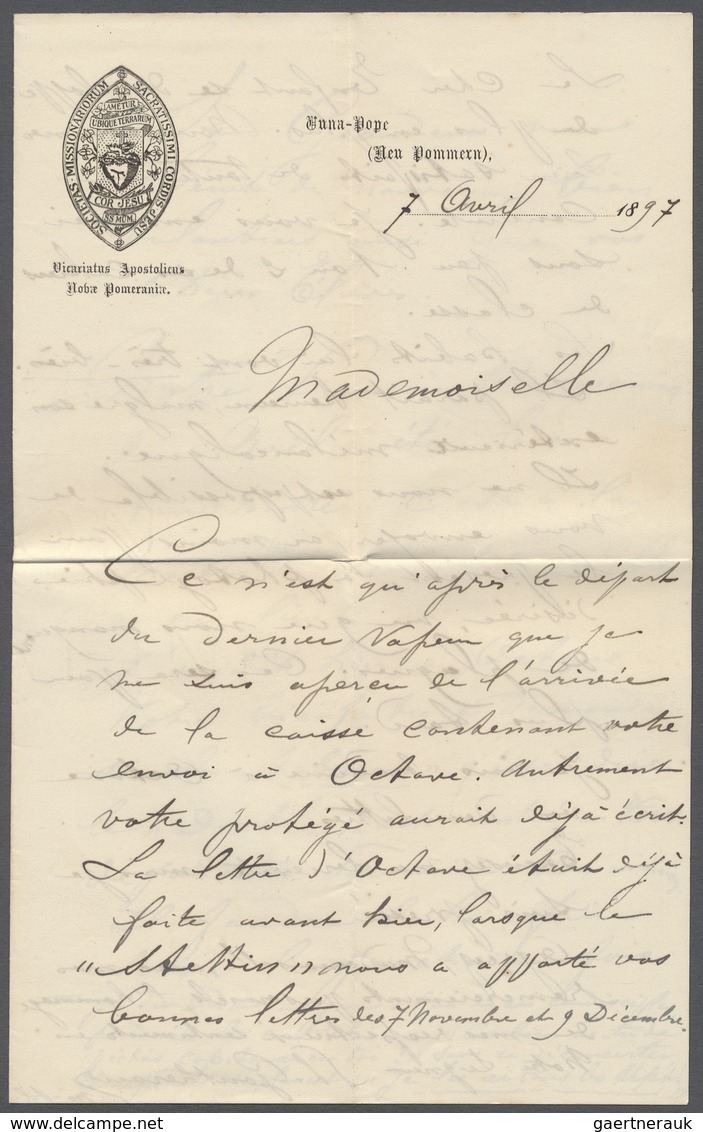 SOCIETAS · MISSIONARIORUM SACRATISSIMI CORDIS JESU
AMETUR
UBIQUE TERRARUM
COR JESU
SS MUM.
Vicariatus Apostolicus
Novæ Pomeraniæ.
Vuna-Pope
(Neu Pommern),
7 Avril 1897
Mademoiselle
Ce n'est qu'après le départ
du dernier vapeur que je
me suis aperçu de l'arrivée
de la caisse contenant votre
envoi à Octave. Autrement
votre protégé aurait déjà écrit.
La lettre d'Octave était déjà
faite avant hier, lorsque le
"Stettin" nous a apporté vos
bonnes lettres des 7 Novembre et 9 Décembre.
gaertnerauk